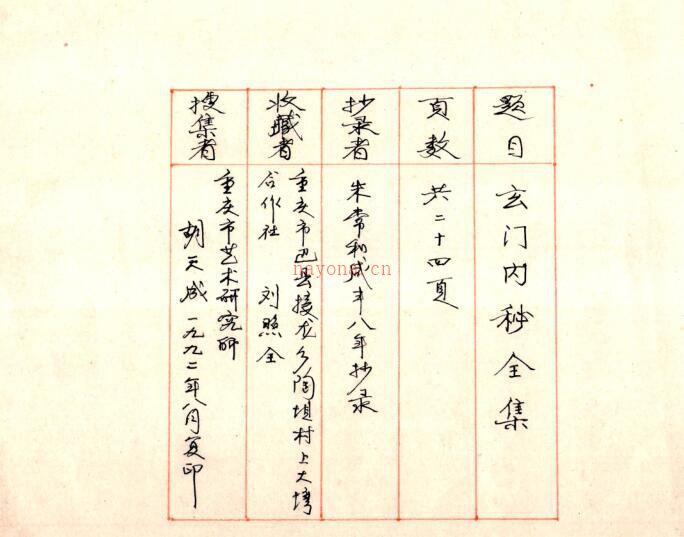 题目
玄门内秘全集
頁数
共二十四頁
抄录者
朱常和咸丰八年抄录
收藏者
重庆市巴县接龙乡陶埧村上大塆
合作社 刘照全
搜集者
重庆市艺术研究所
胡天成 一九九二年八月复印
nayong.cn